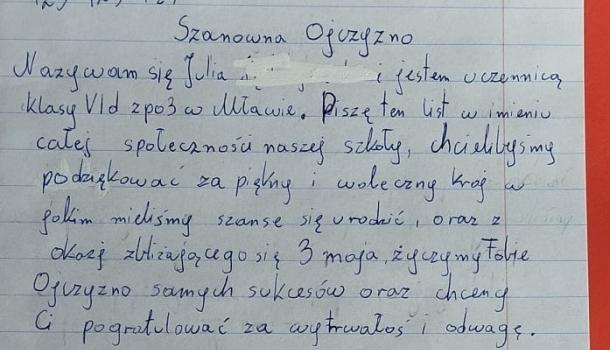 Szanowna Ojczyzno
Nazywam się Julia i jestem uczennicą
klasy VId zpo3 w Mławie. Piszę ten list w imieniu
całej społeczności naszej szkoły, chcielibyśmy
podziękować za piękny i waleczny kraj w
jakim mieliśmy szansę się urodzić, oraz z
okazj zbliżającego się 3 maja, życzymy Tobie
Ojczyzno samych sukcesów oraz chcemy
Ci pogratulować za wytrwałoś i odwagę.